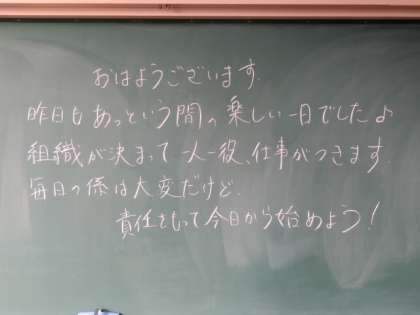 おはようございます.
昨日もあっという間の楽しい一日でした♪
組織が決まって一人一役、仕事がつきます.
毎日の係は大変だけど.
責任をもって今日から始めよう!